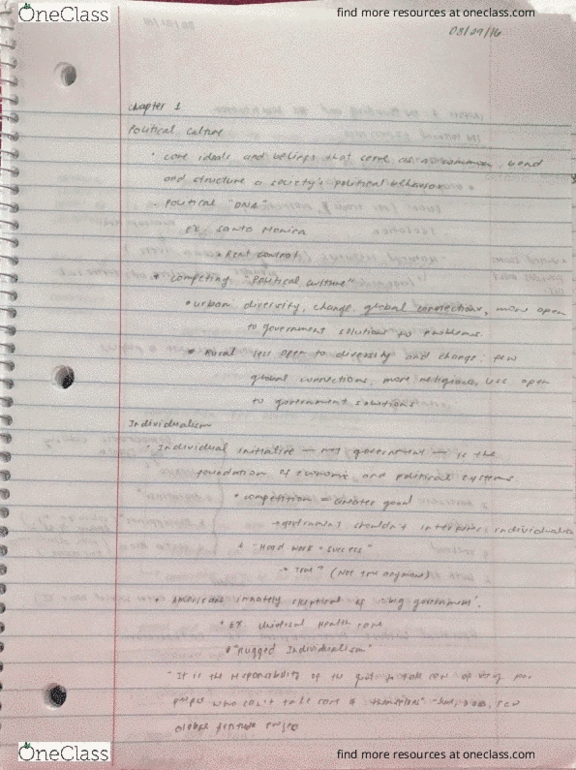 OneClass
find more resources at oneclass.com
03/29/16
Chapter 1
Political Culture
• core ideals and beliefs that serve as a common bond
and structure a society's political behavior
Political "DNA"
EX. Santa Monica
Rent control
* competing "Political culture"
• urban diversity, change, global connections, more open
to government solutions to problems.
• Rural less open to diversity and change; few
global connections, more religious, less open
to government solutions
Individualism
• Individual initiative — not government — is the
foundation of economic and political systems.
• competition = Greater good
→ government shouldn't interfere; individualism
"Hard work = success"
(Not true anymore)
• Americans innately skeptical of "big government".
• EX. Universal Health care
• "Rugged Individualism"
- It is the responsibility of the gov't to take care of very
people who can't take care of themselves
OneClass
find more resources at oneclass.com